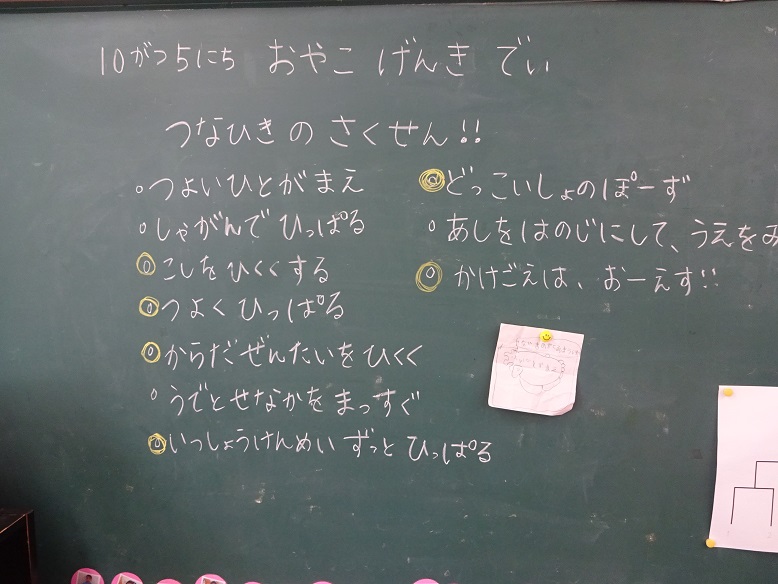 10がつ5にち おやこ げんき でぃ
つなひき の さくせん!!
○つよいひとがまえ
○しゃがんで ひっぱる
○こしをひくくする
○つよく ひっぱる
○からだぜんたいを ひくく
○うでとせなかを まっすぐ
○いっしょうけんめい ずっと ひっぱる
◎どっこいしょのぽーず
○あしをはのじにして、うえをみ
○かけごえは、おーえす!!